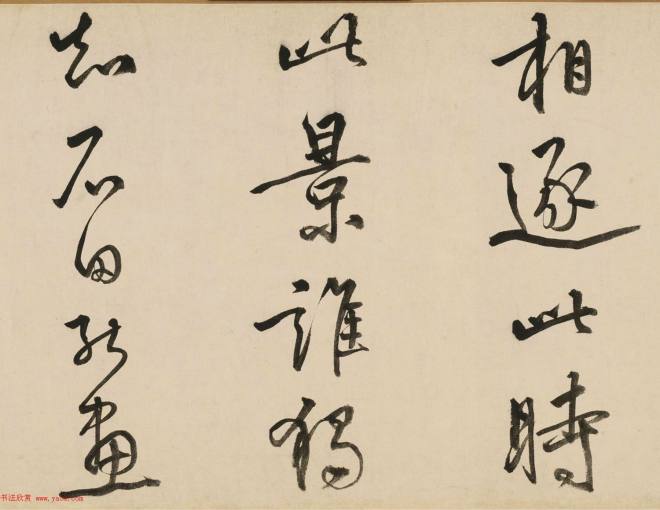 相逐此時
此景誰獨
知石田能畫
书法欣赏 www.yac